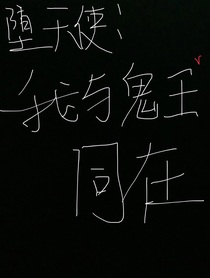 堕天使：
我与鬼王
同在